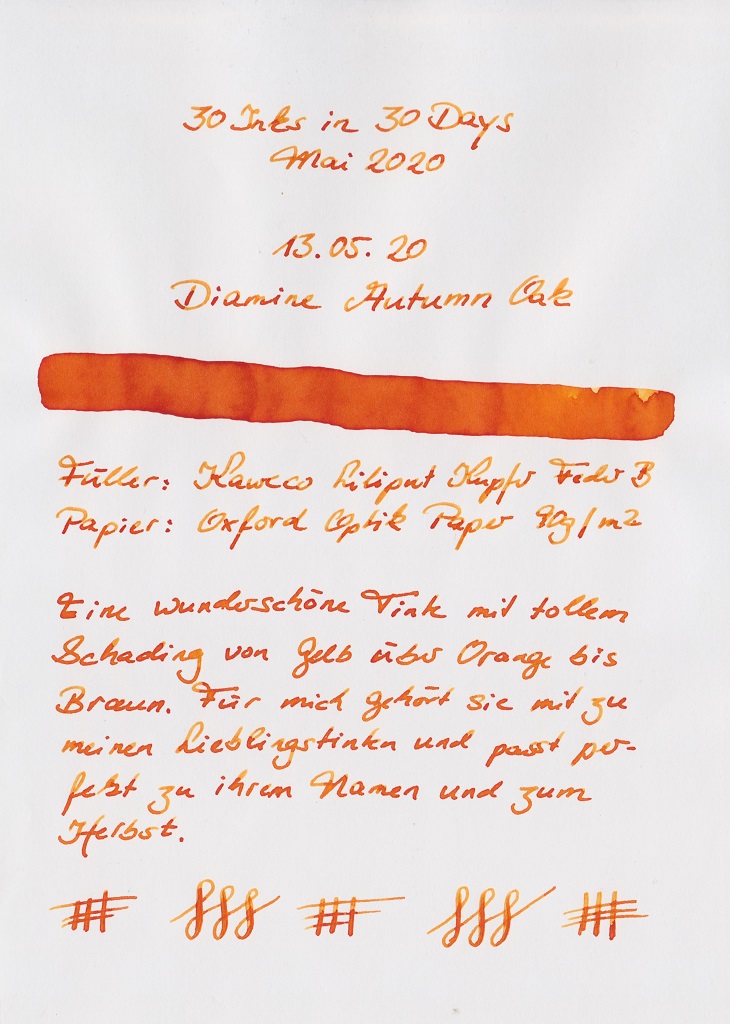 30 Inks in 30 Days
Mai 2020
13.05.20
Diamine Autumn Oak
Füller: Kaweco Liliput Kupfer Feder B
Papier: Oxford Optik Paper 90g/m2
Eine wunderschöne Tinte mit tollem
Schading von Gelb über Orange bis
Braun. Für mich gehört sie mit zu
meinen Lieblingstinten und passt per-
fekt zu ihrem Namen und zum
Herbst.